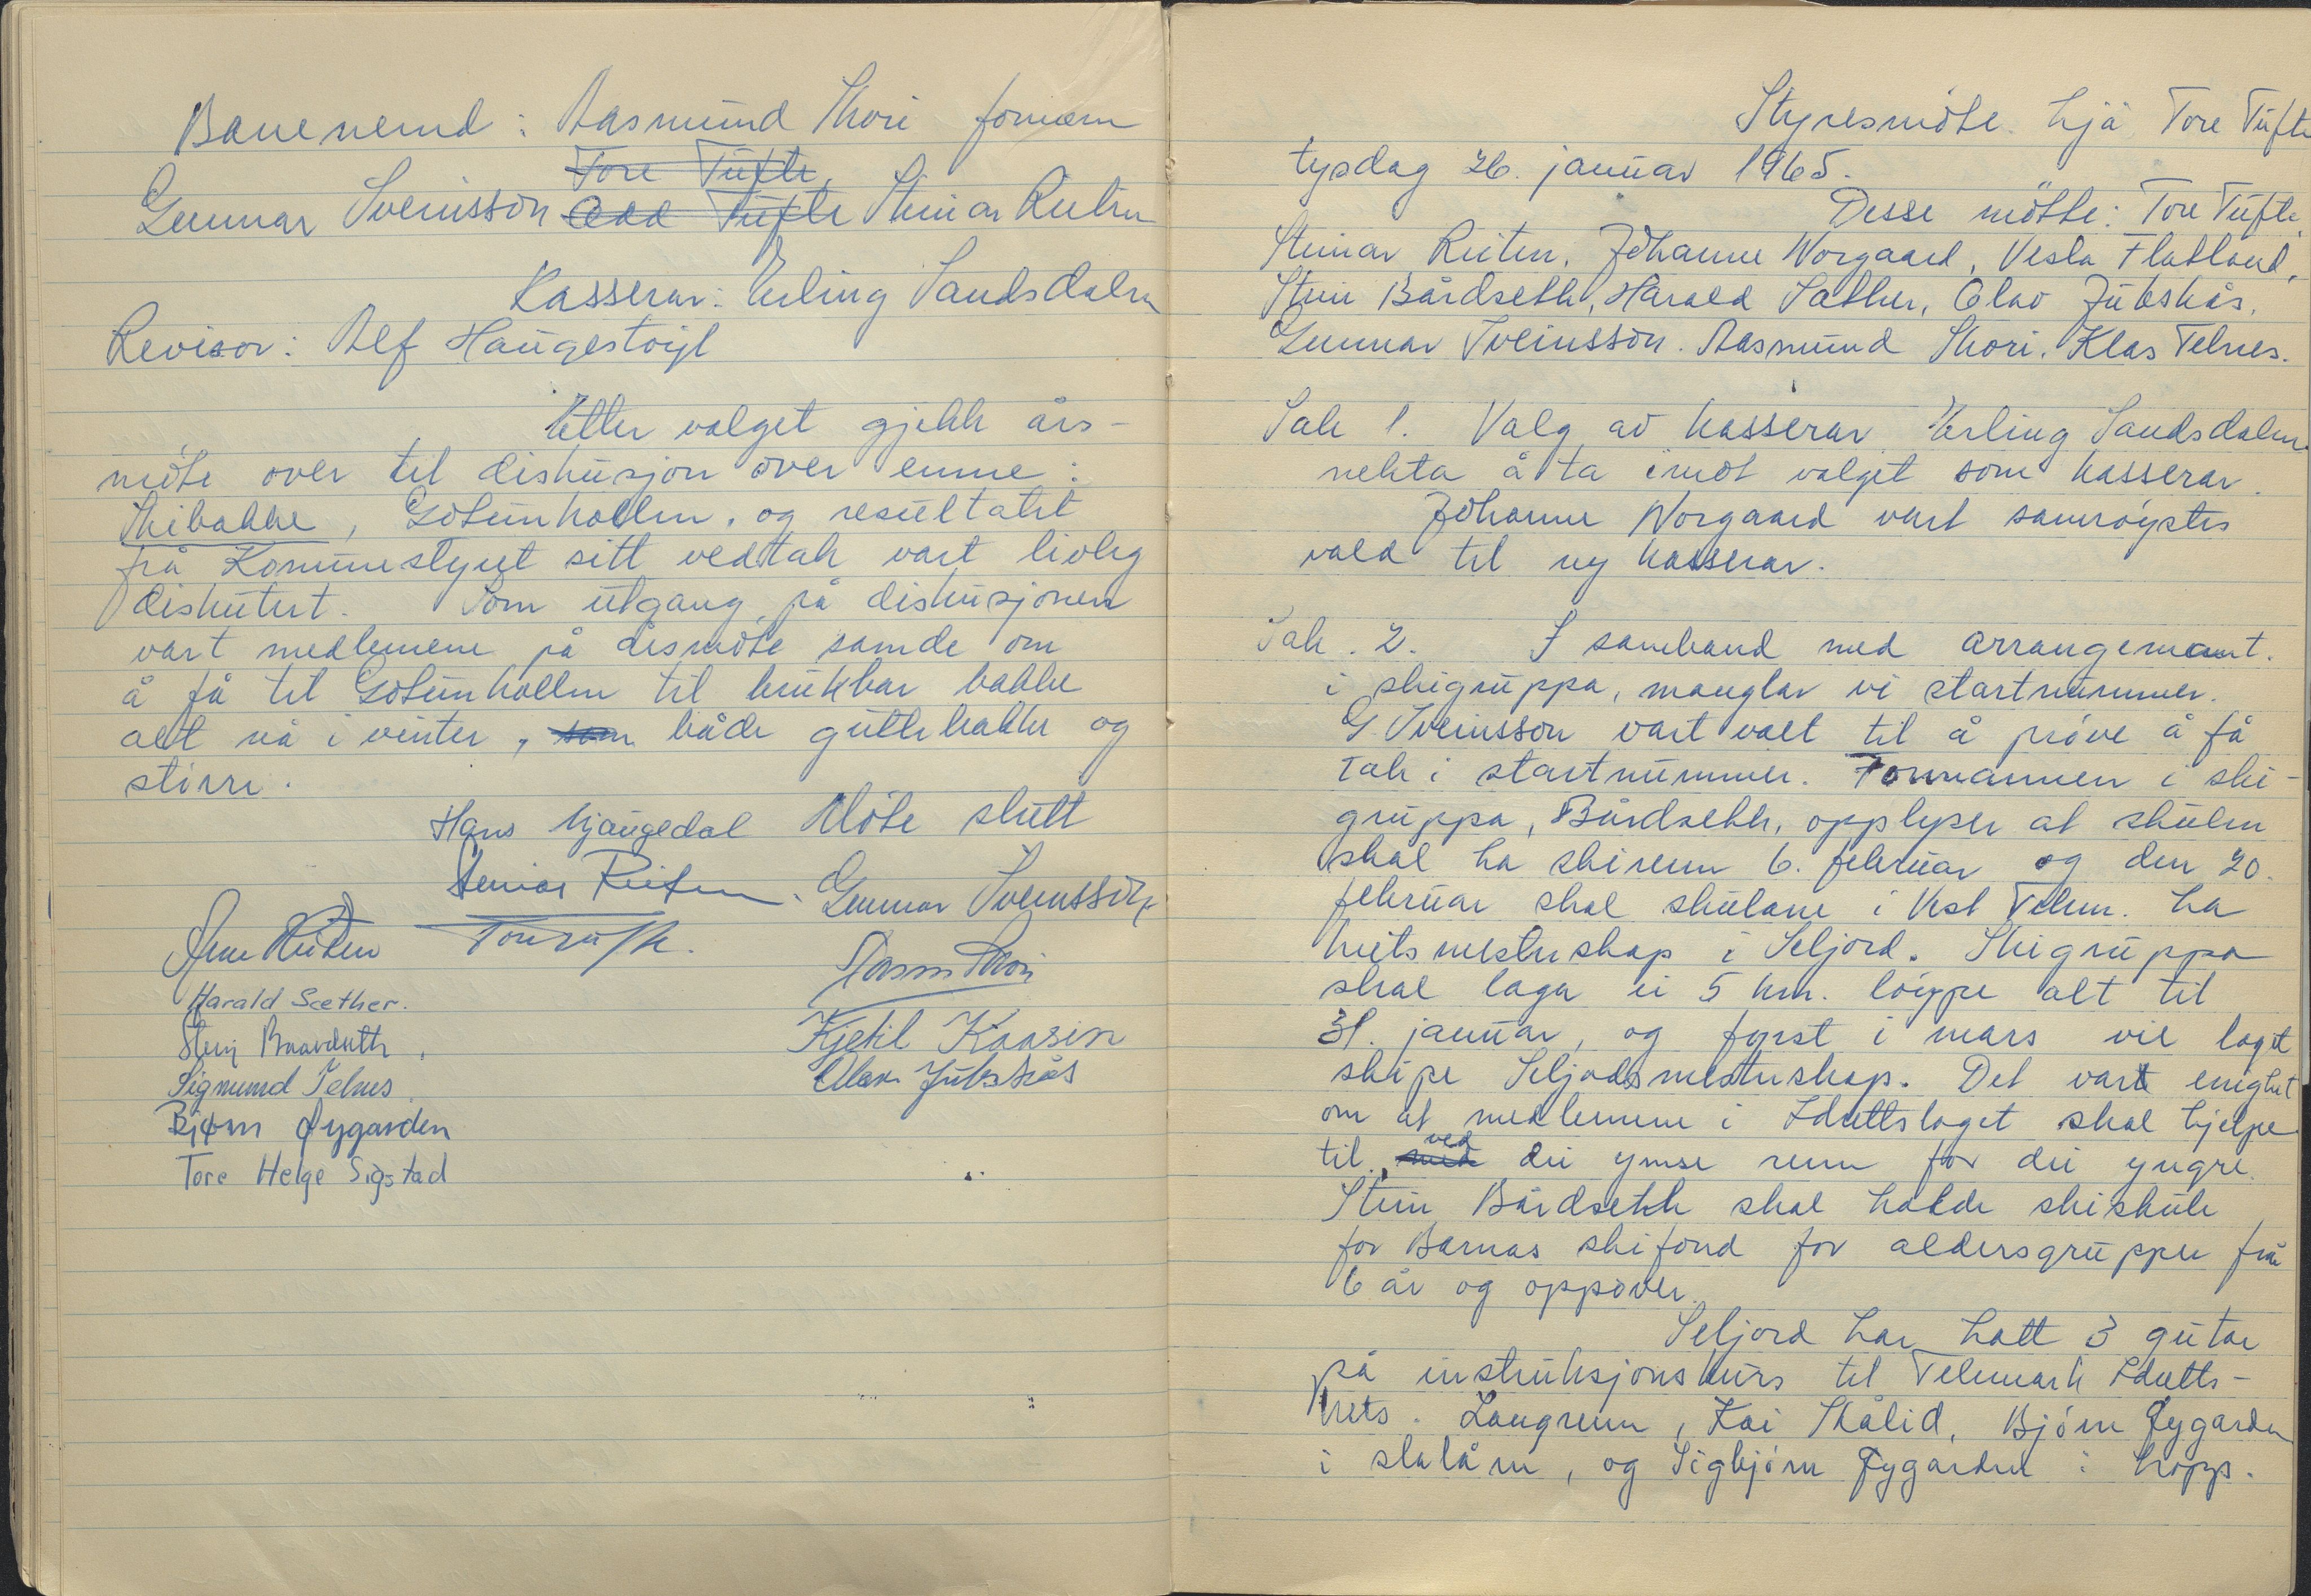 Banenemd: Aasmund Skori formann
Tore Tufte,
Gunnar Sveinsson Odd Tufte Steinar Reiten
Kasserar: Erling Sandsdalen
Revisor: Alf Haugestøyl
Etter valget gjekk års-
møte over til diskusjon over emne:
Skibakke, Gotunkollen, og resultatet
frå Kommunestyret sitt vedtak vart livleg
diskutert. Som utgang på diskusjonen
vart medlemene på årsmøte samde om
å få til Gotunkollen til brukbar bakke
alt nå i vinter, som både guttebakke og
større.
Hans Mjaugedal Møte slutt
Steinar Reiten. Gunnar Sveinsson
Reiten Tore Tufte.
Harald Sæther.
Stein Baardseth, Kjetil Kaasin
Sigmund Telnes. Olav Jukskås
Bjørn Øygarden
Tore Helge Sigstad
Styresmöte hjå Tore Tufte
tysdag 26. januar 1965.
Desse møtte: Tore Tufte,
Steinar Reiten, Johanne Norgaard, Vesla Flatland,
Stein Bårdseth, Harald Sæther, Olav Jukskås,
Gunnar Sveinsson. Aasmund Skori. Klas Telnes.
Sak 1. Valg av kasserar Erling Sandsdalen
nekta å ta imot valget som kasserar.
Johanne Norgaard vart samrøystes
vald til ny kasserar.
Sak. 2. I samband med arrangemant.
i skigruppa, manglar vi startnummer.
G. Sveinsson vart valt til å prøve å få
tak i startnummer. Formannen i ski-
gruppa, Bårdseth, opplyser at skulen
skal ha skirenn 6. februar og den 20.
februar skal skulane i Vest Telem. ha
kretsmesterskap i Seljord. Skigruppa
skal laga ei 5 km. løype alt til
31. januar, og fyrst i mars vil laget
skipe Seljordsmesterskap. Det vart enighet
om at medlemene i Idrettslaget skal hjelpe
ved
til, med dei ymse renn for dei yngre.
Stein Bårdseth skal halde skiskule
for Barnas skifond for aldersgrupper frå
6 år og oppover.
Seljord har hatt 3 gutar
på instruksjonskurs til Telemark Idretts-
krets. Langrenn, Kai Skålid, Bjørn Øygarden
i slalåm, og Sigbjørn Øygarden i hopp.